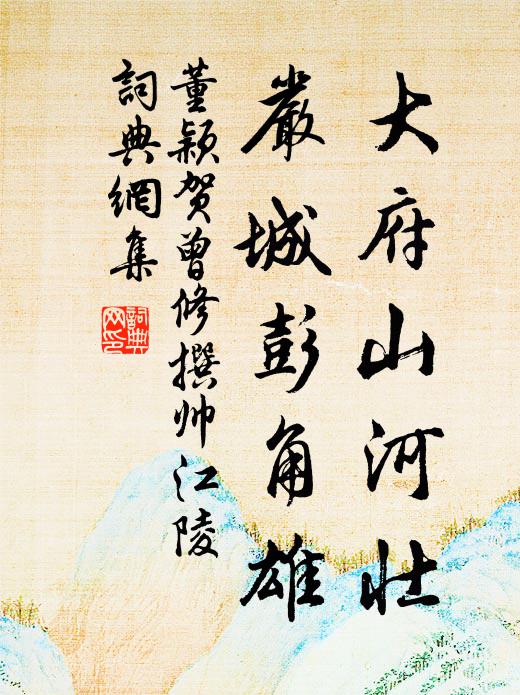 大府山河壮
嚴城彭角雄
董颖贺曾修撰帅江陵
詞典網集
詞典网印